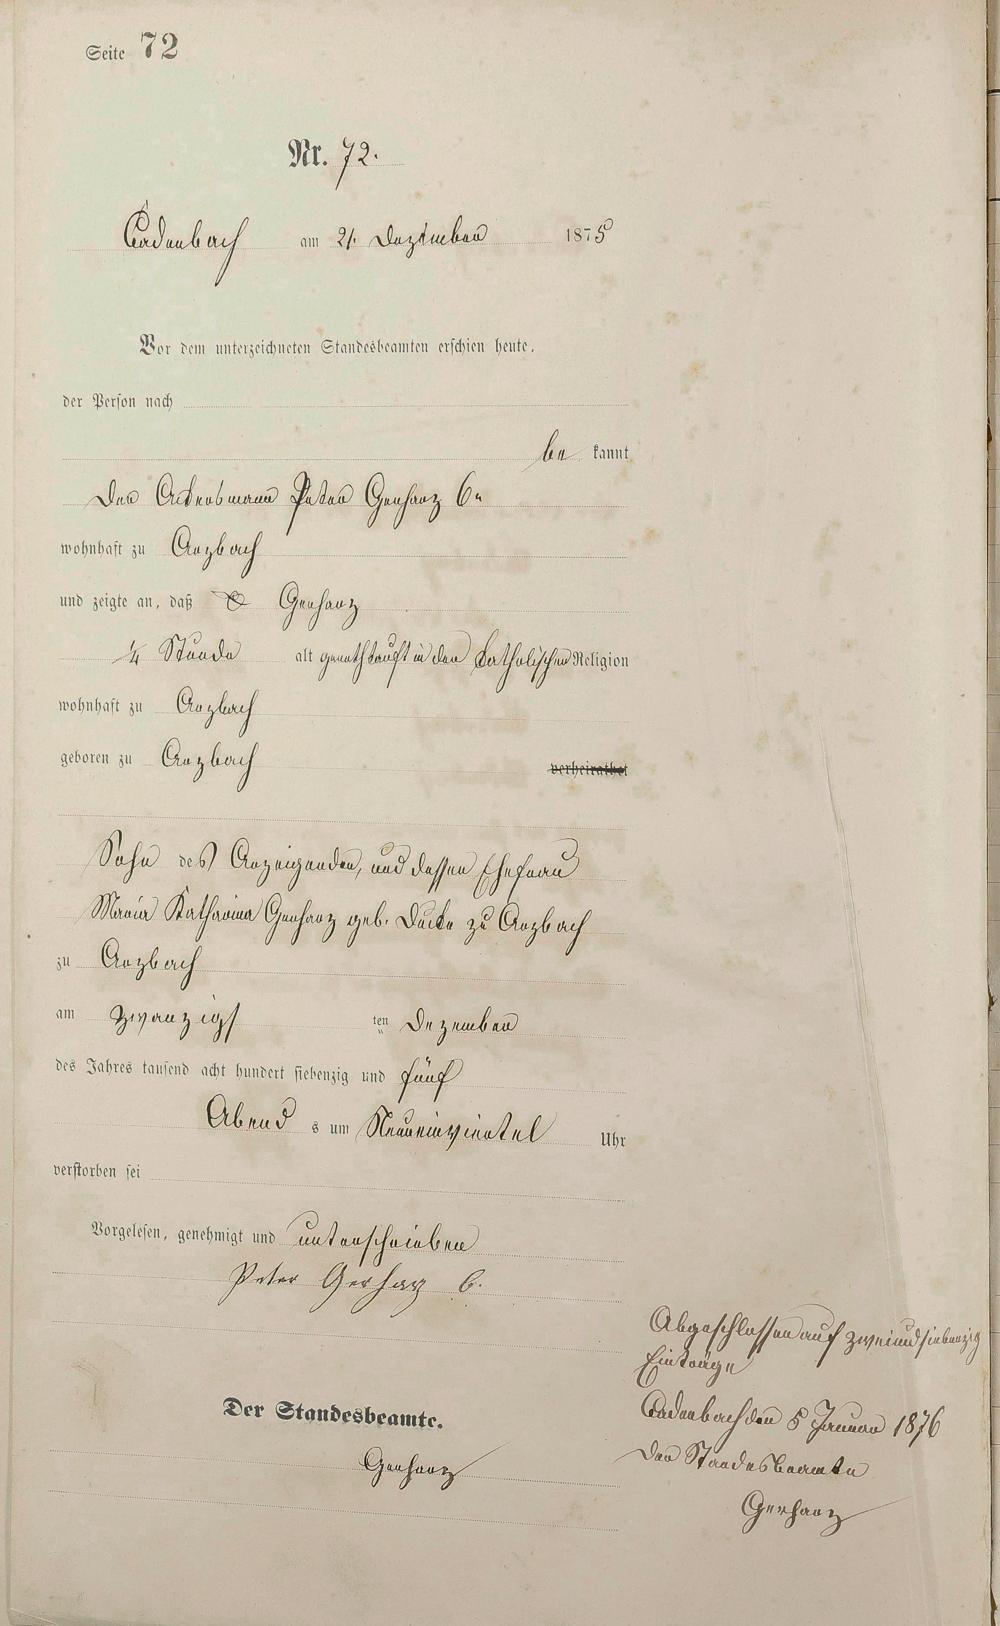 Seite 72
Nr. 72.
Cadenbach am 21. Dezember 1875
Vor dem unterzeichneten Standesbeamten erschien heute,
der Person nach
be kannt
Der Ackersmann Peter Gerharz 6r
wohnhaft zu Arzbach
und zeigte an, daß Gerharz
1/4 Stunde alt genothtauft in der katholischen Religion
wohnhaft zu Arzbach
geboren zu Arzbach verheirathet
Sohn des Anzeigenden, und dessen Ehefrau
Maria Katharina Gerharz geb. zu Arzbach
zu Arzbach
am zwanzigs ten Dezember
des Jahres tausend acht hundert siebenzig und fünf
Abend s um Neuneinviertel Uhr
verstorben sei
Vorgelesen, genehmigt und unterschrieben
Peter Gerharz 6.
Der Standesbeamte.
Gerharz
Abgeschlossen auf zweiundsiebenzig
Einträge
Cadenbach den 5 Januar 1876
Der Standesbeamte
Gerharz